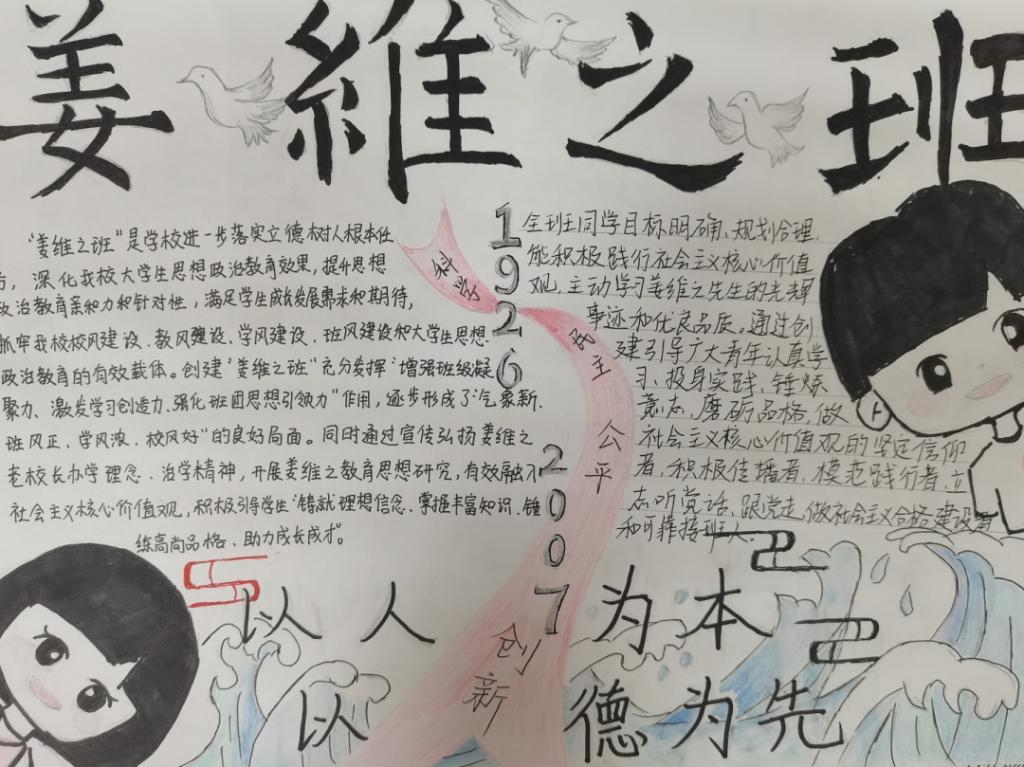 姜維之班
"姜维之班"是学校进一步落实立德树人根本任
务，深化我校大学生思想政治教育效果，提升思想
政治教育亲和力和针对性，满足学生成长发展需求和期待，
抓牢我校校风建设、教风建设、学风建设、班风建设和大学生思想
政治教育的有效载体。创建"姜维之班"充分发挥"增强班级凝
聚力、激发学习创造力、强化班团思想引领力"作用，逐步形成了"气象新、
班风正、学风浓、校风好"的良好局面。同时通过宣传弘扬姜维之
老校长办学理念、治学精神，开展姜维之教育思想研究，有效融入
社会主义核心价值观，积极引导学生"铸就理想信念、掌握丰富知识、锤
练高尚品格、助力成长成才"。
1926
2007
科学
民主
公平
创新
全班同学目标明确、规划合理，
能积极践行社会主义核心价值
观，主动学习姜维之先生的光辉
事迹和优良品质。通过创
建引导广大青年认真学
习、投身实践、锤炼
意志、磨砺品格，做
社会主义核心价值观的坚定信仰
者，积极传播者，模范践行者，立
志听党话、跟党走，做社会主义合格建设者
和可靠接班人。
以人为本
以德为先